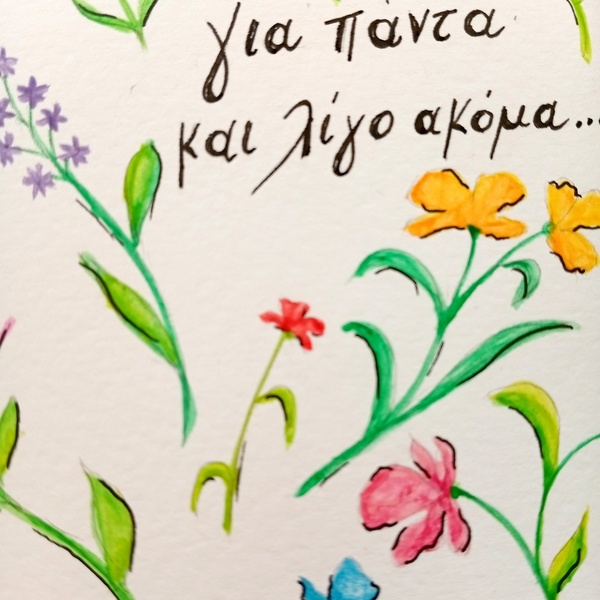 για πάντα
και λίγο ακόμα...